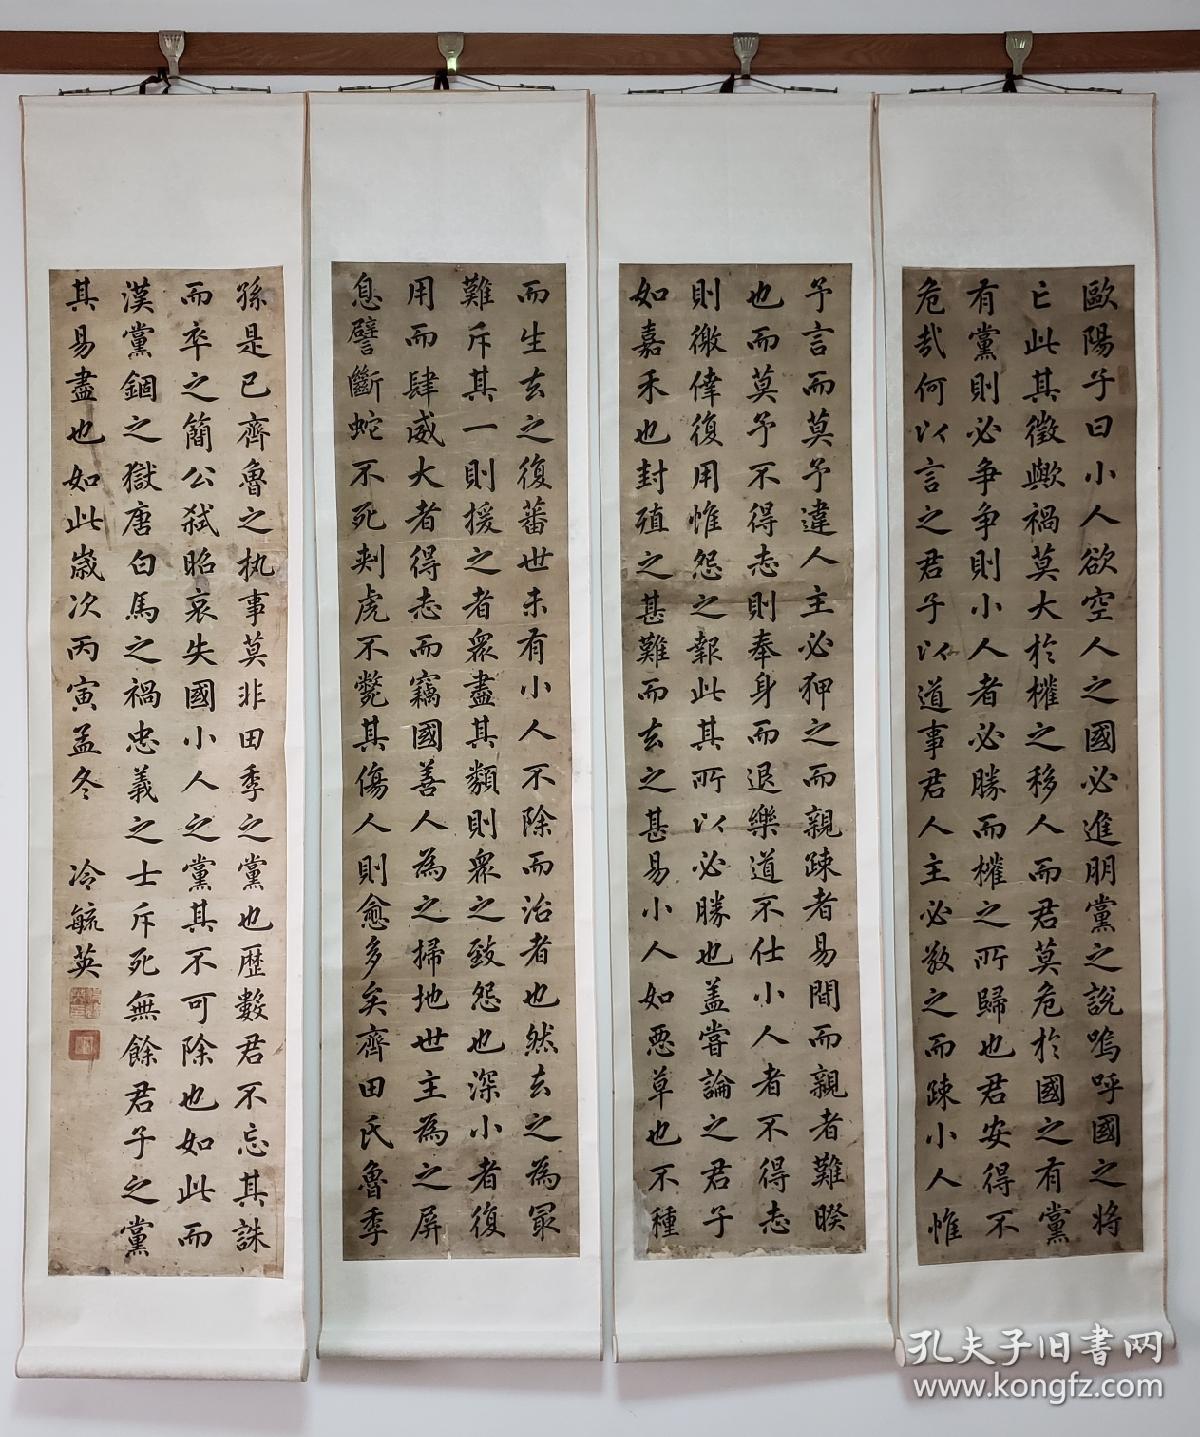 歐陽子曰小人欲空人之國必進朋黨之說嗚呼國之將
亡此其徵歟禍莫大於權之移人而君莫危於國之有黨
有黨則必爭爭則小人者必勝而權之所歸也君安得不
危哉何以言之君子以道事君人主必敬之而疎小人惟
予言而莫予違人主必狎之而親疎者易間而親者難睽
也而莫予不得志則奉身而退樂道不仕小人者不得志
則徼倖復用惟怨之報此其所以必勝也盖嘗論之君子
如嘉禾也封殖之甚難而去之甚易小人如惡草也不種
而生去之復蕃世未有小人不除而治者也然去之為冣
難斥其一則援之者衆盡其類則衆之致怨也深小者復
用而肆威大者得志而竊國善人為之掃地世主為之屏
息譬斷蛇不死刺虎不斃其傷人則愈多矣齊田氏魯季
孫是已齊魯之执事莫非田季之黨也歷數君不忘其誅
而卒之簡公弑昭哀失國小人之黨其不可除也如此而
漢黨錮之獄唐白馬之禍忠義之士斥死無餘君子之黨
其易盡也如此歲次丙寅孟冬 冷毓英
孔夫子旧书网
www.kongfz.com